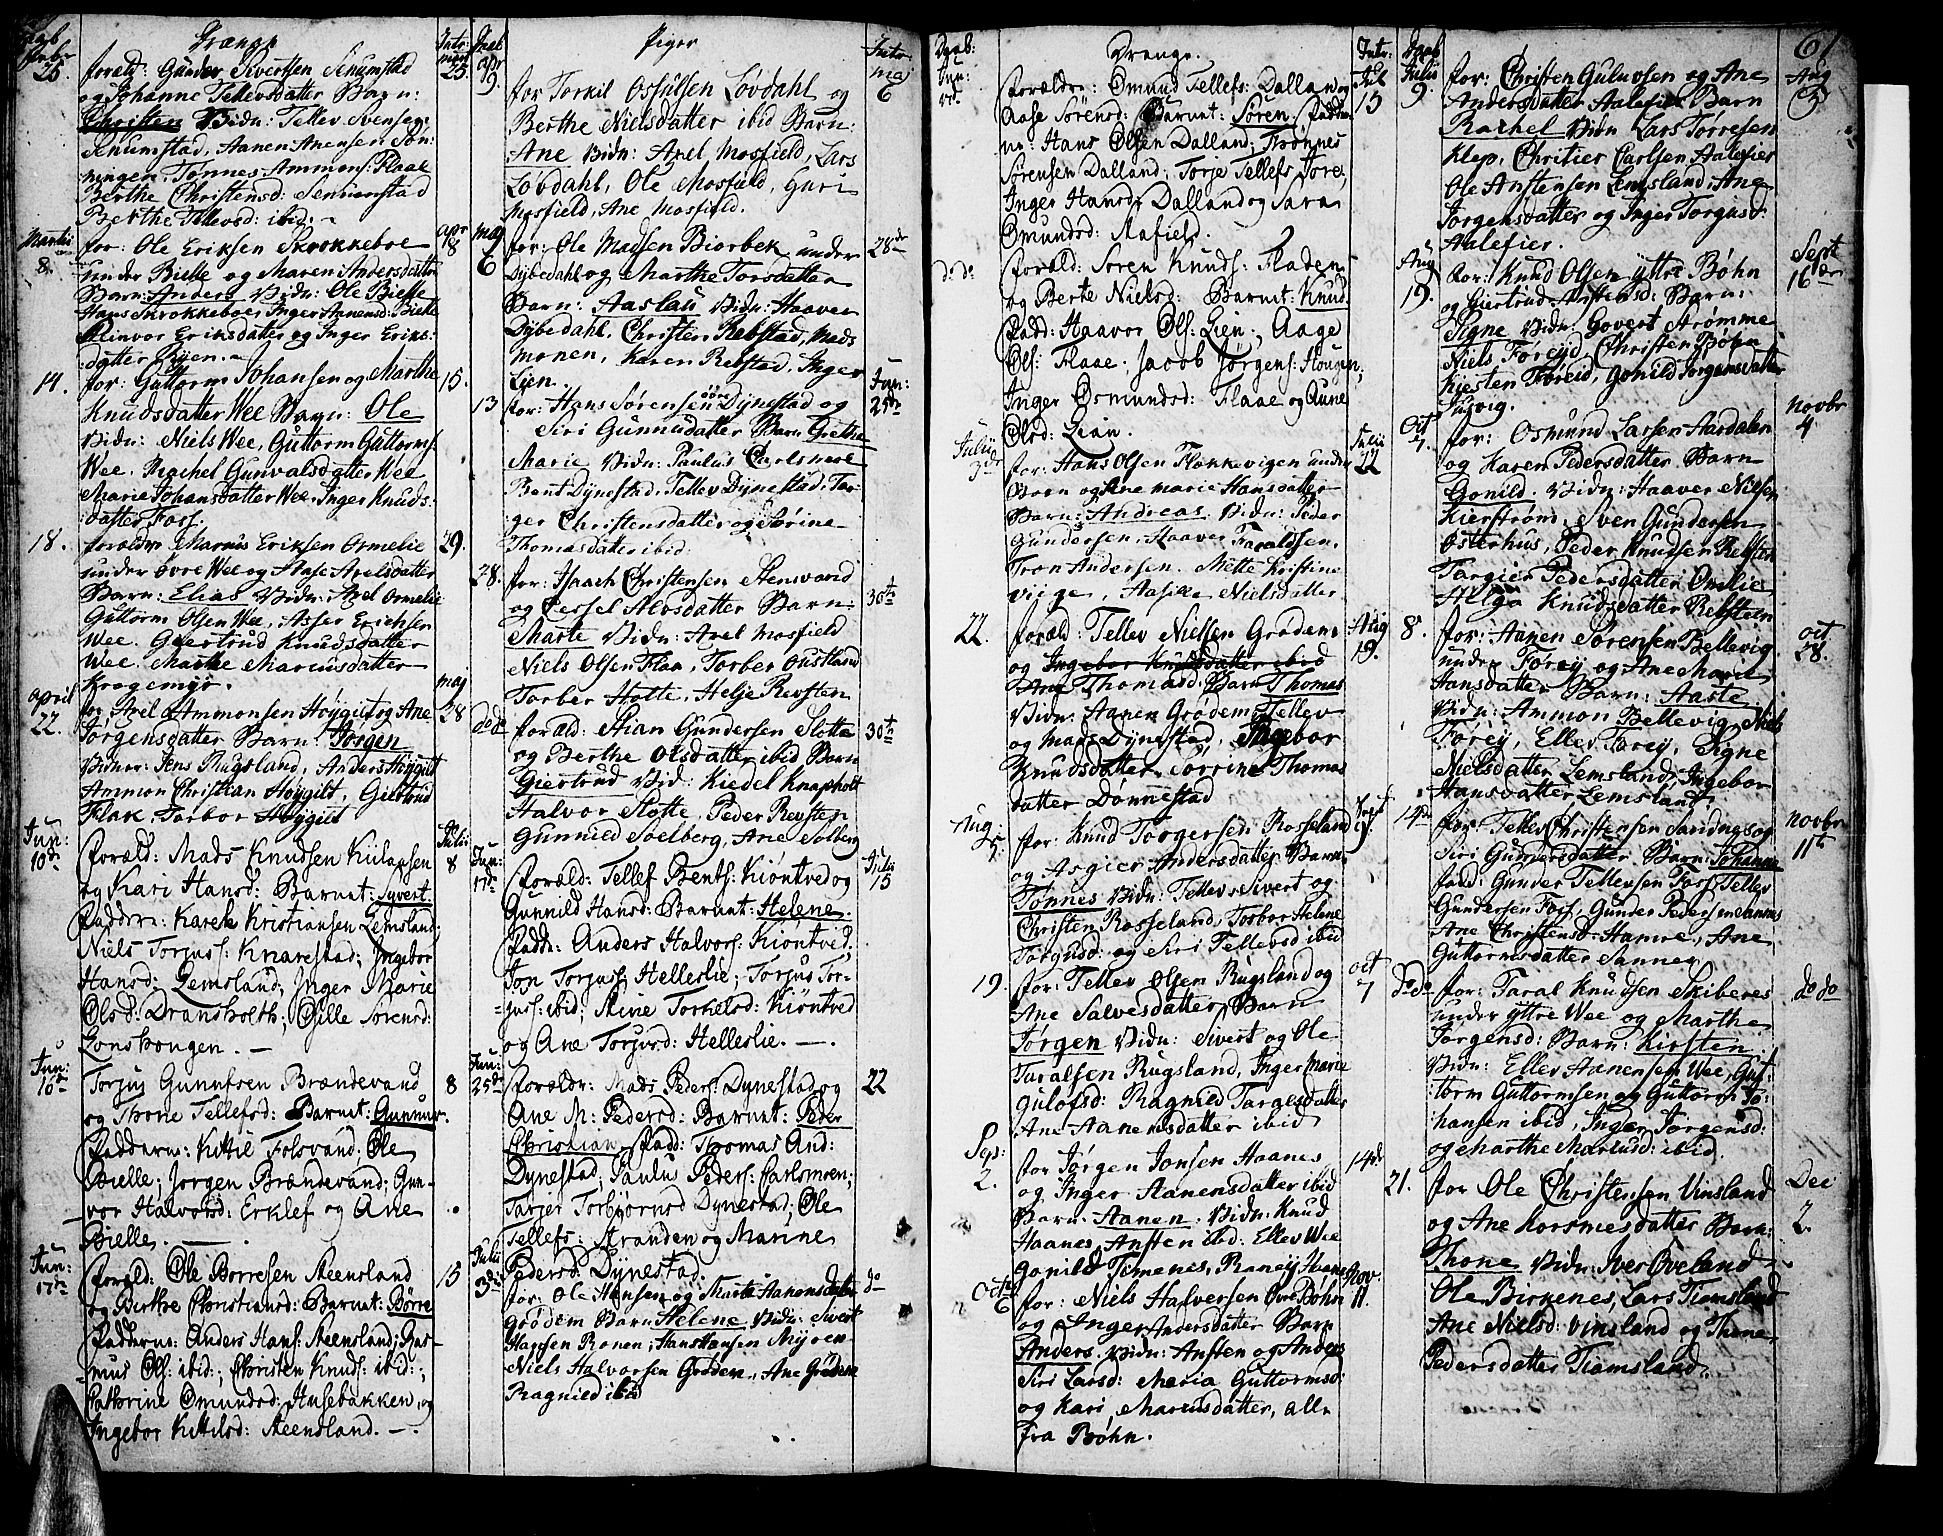 Drænge
foræld: Gunder Sivertsen Snumstad
og Johanne Tellevsdatter Barn:
Christen Vidn: Tellev Svensen
Knumstad, Aanen Anensen
ningen, Tønnes Ammons: Flaae
Berthe Christensd:
Berthe Tellevsd: ibid.
Martii 8. for: Ole Eriksen Skrokkeboe
under Bielle og Maren Andersdatter
Barn: Anders Vidn: Ole Bielle
Hans Skrokkeboe, Inger Aanensd: Bielle
Elinvor Eriksdatter og Inger Eriks-
datter
14. for: Guttorm Johansen og Marthe 15.
Knudsdatter Wee Barn: Ole
Vidn: Niels Wee, Guttorm Guttorms:
Wee. Rachel Gunvalsdatter Wee
Marie Johansdatter Wee. Inger Knuds-
datter Foss.
18. forældr Marius Eriksen Ormelie 29.
under øvre Wee og Aase Axelsdatter
Barn: Elias Vidn: Axel Ormelie
Guttorm Olsen Wee, Asser Erichsen
Wee. Giertrud Knudsdatter
Wee. Marthe Mariusdatter
Krogemyr.
April 22. for Axel Ammonsen Høygilt og Ane maj 28
Jørgensdatter Barn: Jørgen
Vidner: Jens Rugsland, Anders Høygilt
Ammon Christian Høygilt, Giertrud
Flak, Torbor Høygilt
Jun: 10de foræld: Mads Knudsen Julii 8
og Kari Hansd: Barnet: Syvert.
Faddrn: Karele Kristiansen Lemsland;
Niels Torjuss: Knarestad; Ingebor
Hansd: Lemsland; Inger Marie
Olsd: Dransholth; Sille Sørensd:
Lonskougen. —
Jun: 16de Torjus Gunnufsen Brændevand 8
og Thone Tellefsd: Barnet: Gunnur.
Faddern: Kittil Folsvand; Ole
Bielle; Jørgen Brændevand; Gun-
vor Halvorsd: Erklef og Ane
Bielle. —
Jun: 17de foræld: Ole Børresen Steensland 15
og Berthe Christiansd: Barnet: Børre
Faddrene: Anders Hans: Steensland; Ras-
mus Ols: ibid:; Christen Knuds: ibid:;
Cathrine Omundsd: Husebakken, og
Ingebor Kittilsd: Steensland. —
Piger
apr 9 for Torkil Osfulsen Løvdahl og maj 6
Berthe Nielsdatter ibid Barn:
Ane Vidn: Axel Mosfield, Lars
Løvdahl, Ole Mosfield, Guri
Mosfield, Ane Mosfield.
maj 6 for: Ole Madsen Biorbek under 28de
Dybedahl og Marthe Torsdatter
Barn: Aaslau Vidn: Haaver
Dybedahl. Christen Rebstad, Mads
monen, Karen Rebstad, Inger
Lien.
13 for: Hans Sørensen Dynestad og Jun: 25de
Siri Gunnudatter Barn Grethe
Marie Vidn: Paulus Carlsmoe
Bent Dynestad, Tellev Dynestad, Tar-
ger Christensdatter og Særine
Thomasdatter ibid.
28. for: Isaach Christensen Stensvand
og Sessel Alvsdatter Barn: 30te
Marte Vidn: Axel Mosfield
Niels Olsen Flaa, Torber Oustland
Torber Hotte, Helje Revsten
dodo foræld: Stian Gundersen Slotte 30te
og Berthe Olsdatter ibid Barn
Giertrud Vid: Kiedel Knapholt
Halvor Slotte, Peder Revsten
Gunnild Soelberg, Ane Solberg
Jun: 17de foræld: Tellef Bents: Kiøntved og Julii 15
Gunnild Hansd: Barnet: Helene.
Faddr: Anders Halvors: Kiøntved;
Jon Torjuss: Helleslie; Torjus Tor-
juss: ibid; Stine Torkelsd: Kiøntved
og Ane Torjusd: Helleslie. —
Jun: 25de forældr: Mads Peders: Dynestad og 22
Ane M: Pedersd: Barnet: Peder
Christian Fadd: Thomas And:
Dynestad; Paulus Peders: Carlsmoen;
Tarjer Torbjørnsd Dynestad; Ole
Tellefs: Stranden og Marine
Pedersd: Dynestad.
Julii 3de for: Ole Hansen og Marte Aanensdatter do
Grødem Barn Helene Vidn: Sivert
Hansen Ronen; Hans Hansen Myren
Niels Halvorsen Grødem, Ane Grødem
Ragnild ibid
Drænge.
forældre: Omund Tellefs: Dalland og Jul 15
Aase Sørensd: Barnet: Søren. Fadder
ne: Hans Olsen Dalland; Trønnes
Sørensen Dalland; Torje Tellefs
Inger Hansd: Dalland og Sara
Omundsd: Aafield.
dodo forald: Søren Knuds: Fladen
og Berte Nielsd: Barnet: Knud.
Fadd: Haavor Ols: Lien; Aage
Ols: Flaae. Jacob Jørgens: Hougen;
Inger Osmundsd: Flaae og Aune
Olsd: Lien.
Julii 3de for: Hans Olsen Flokkevigen under Julii 22
Boen og Ane Marie Hansdatter
Barn: Andreas. Vidn: Peder
Gundersen, Haaver Taraldsen,
Tron Andersen. Mette Kristine
viige, Aasike Nielsdatter.
22. foræld: Tellev Nielsen Grødem Aug 19.
og Ingebor Knudsdatter ibid
Ane Thomasd: Barn Thomas
Vidn: Aanen Grødem, Tellev
og Mads Dynestad, Ingebor
Knudsdatter. Sorrine Thomas
datter Dønnestad
Aug 5 for: Knud Torgersen Rosseland
og Asgier Andersdatter Barn
Tønnes Vidn: Tellev Sivert og
Christen Rosseland, Torbor Helene
Torgusd: og Siri Tellevsd ibid
19. for: Tellev Olsen Rugsland og oct 7
Ane Salvesdatter Barn
Jørgen Vidn: Sivert og Ole
Taralsen Rugsland, Inger Marie
Gulofsd: Ragnild Targesdatter
Ane Aanensdatter ibid
Sep: 2. for Jørgen Jonsen Haanes 14de
og Inger Aanensdatter ibid
Barn: Aanen. Vidn: Knud
Haanes, Ansten ibid: Ellev Wee
Gonild Temenes, Raneij Svene
Octo 6 for: Niels Halversen øvre Bøhn Nov. 11.
og Inger Andersdatter Barn
Anders. Vidn: Ansten og Anders
Siri Larsd: Maria Guttormsd:
og Kari Mariusdatter, alle
fra Bøhn.
61
Julii 9. for: Christen Guluvsen og Ane Aug 5
Andersdatter Aalefier Barn
Rachel Vidn Lars Torresen
Klep, Chritier Carlsen Aalefier
Ole Anstensen Lemsland, Ane
Jørgensdatter og Inger Torgusd:
Aalefier.
Aug 19. for: Knud Olsen yttre Bøhn Sept 16de
og Giertrud Austensd: Barn:
Signe Vidn: Govert Strømme
Niels Føreijd, Christen Bøhn
Kjesten Føreid, Gonild Jørgensdatter
Julvig.
Oct 7. for: Osmund Larsen Aardalen novbr 4
og Karen Pedersdatter Barn
Gonild. Vidn: Haaver Nielsen
Kierstrøm, Sven Gundersen
Østerhus, Peder Knudsen Rebsten
Targier Pedersdatter Omlie
Helga Knudsdatter Rebsteen
8. for: Aanen Sørensen Bellevig oct 28.
under Forey og Ane Marie
Hansdatter Barn: Aaste
Vidn: Ammon Bellevig, Niels
Forey, Ellev Forey, Signe
Nielsdatter Lemsland, Ingebor
Hansdatter Lemsland
14de for: Tellev Christensen og novbr 11te
Siri Gundersdatter Barn: Johanne
fadd: Gunder Tellevsen Foss, Tellev
Gundersen Foss, Gunder Pedersen Sannes
Ane Christensd: Hamre, Ane
Guttormsdatter Sannes
dodo for: Taral Knudsen Skiberes dodo
under yttre Wee og Marthe
Jørgensd: Barn: Kirsten.
Vidn: Ellev Aanensen Wee, Gut-
torm Guttormsen og Guttorm Jo-
hansen ibid, Inger Jørgensd:
og Marthe Mariusd: ibid.
21. for Ole Christensen Vinsland Dec 2.
og Ane Korsmesdatter Barn:
Thone Vidn: Iver Øveland
Ole Birkenes, Lars Tiamsland
Ane Nielsd: Vinsland og Thone
Pedersdatter Tiamsland.